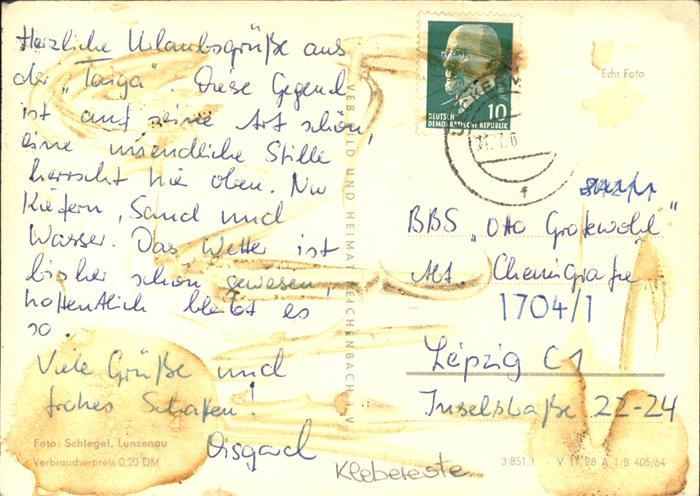 Herzliche Urlaubsgrüße aus
der „Taiga“. Diese Gegend
ist auf seine Art schön,
eine unendliche Stille
herrscht hie oben. Nur
Kiefern, Sand und
Wasser. Das Wetter ist
bisher schön gewesen,
hoffentlich bleibt es
so.
Viele Grüße und
frohes Schaffen!
Foto: Schlegel, Lunzenau
Verbraucherpreis 0,20 DM
Klebereste
VEB BILD UND HEIMAT REICHENBACH I. V.
Echt Foto
10
DEUTSCHE
DEMOKRATISCHE REPUBLIK
BBS „Otto Grotewohl“
Abt. Chemigrafie
1704/1
Leipzig C1
Inselstraße 22-24
3 851/1 · V 11 28 A 1 B 405/64